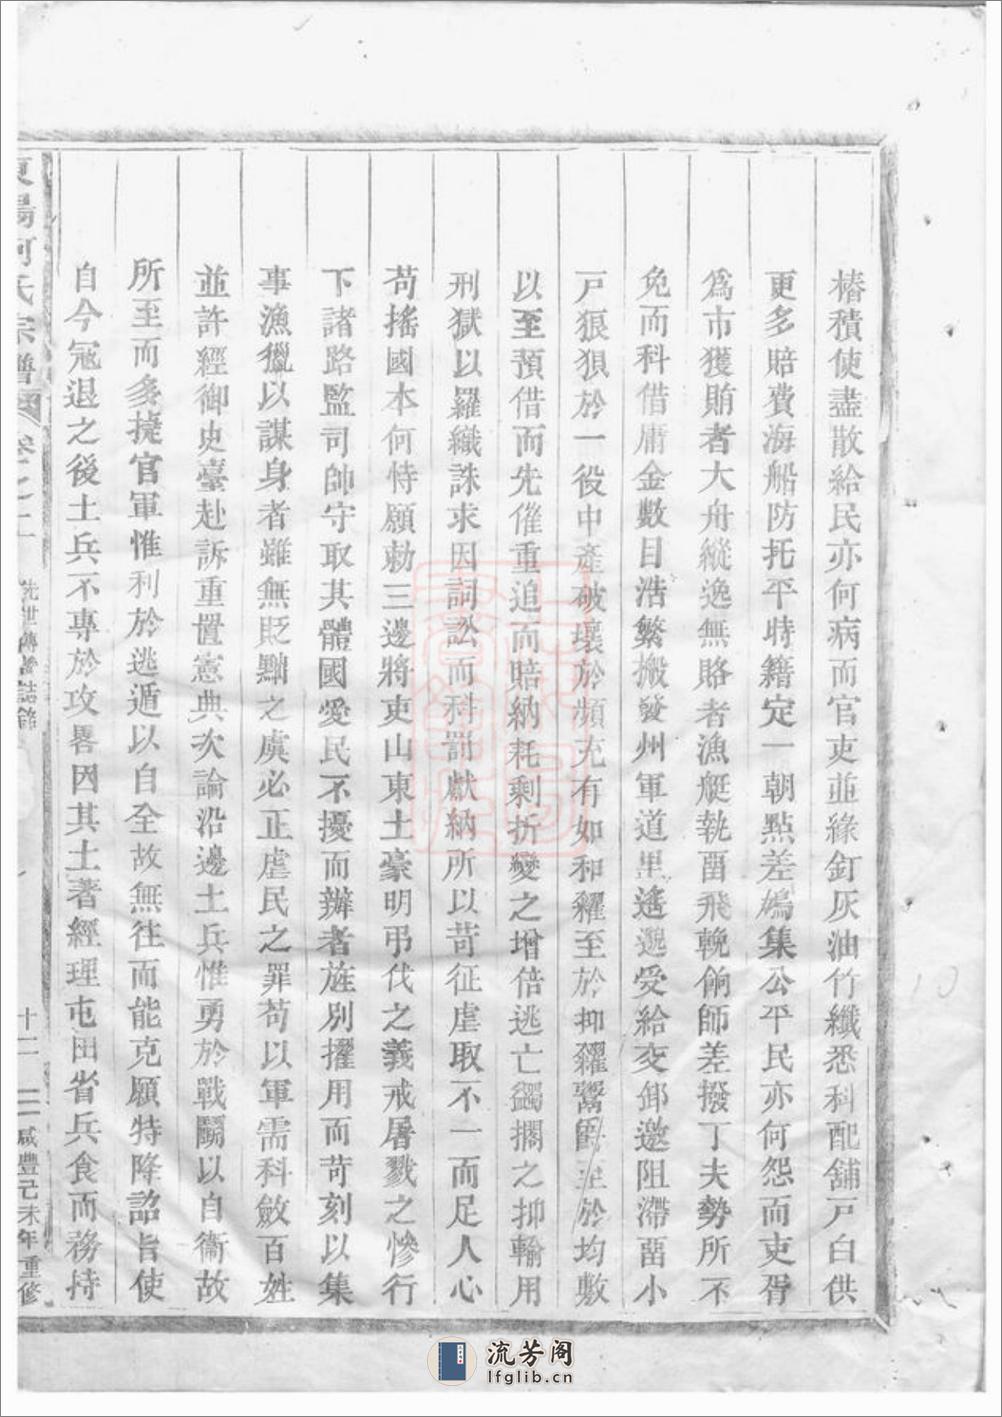 樁積使盡散給民亦何病而官吏並緣釘灰油竹纖悉科配舖戸白供
更多賠費海船防托平時籍定一朝點差鳩集公平民亦何怨而吏胥
爲市獲賄者大舟縱逸無賂者漁艇執畱飛輓餉師差撥丁夫勢所不
免而科借庸金數目浩繁搬發州軍道里遙邈受給交卸邀阻滯畱小
戸狼狽於一役中產破壞於頻充有如和糴至於抑糴鬻爵至於均敷
以至預借而先催重追而賠納耗剩折變之增倍逃亡蠲擱之抑輸用
刑獄以羅織誅求因詞訟而科罰獻納所以苛征虐取不一而足人心
苟搖國本何恃願勅三邊將吏山東土豪明弔伐之義戒屠戮之慘行
下諸路監司帥守取其體國愛民不擾而辦者旌別擢用而苛刻以集
事漁獵以謀身者雖無貶黜之虞必正虐民之罪苟以軍需科斂百姓
並許經御史臺赴訴重置憲典次論沿邊土兵惟勇於戰鬭以自衞故
所至而多撓官軍惟利於逃遁以自全故無往而能克願特降詔旨使
自今冦退之後土兵不專於攻畧因其土著經理屯田省兵食而務持
東陽何氏宗譜 卷之二 先世傳誥錄 十二 咸豐己未年重修
流芳阁
lfglib.cn